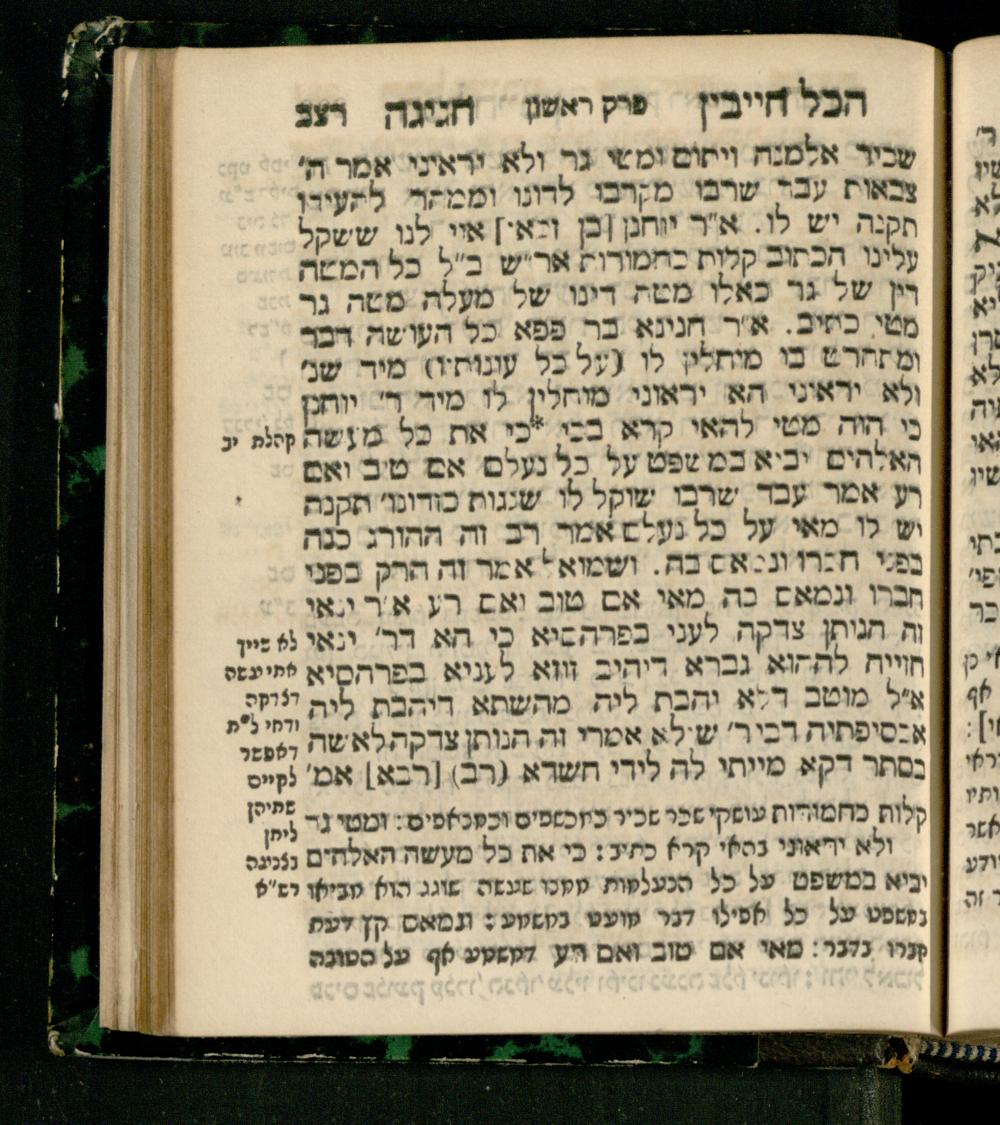 הכל חייבין פרק ראשון חגיגה רצב
שכיר אלמנה ויתום ומטי גר ולא יראוני אמר ה'
צבאות עבד שרבו מקרבו לדונו וממהר להעידו
תקנה יש לו. א"ר יוחנן [בן זכאי] אוי לנו ששקל
עלינו הכתוב קלות כחמורות אר"ש ב"ל כל המטה
דין של גר כאלו מטה דינו של מעלה מטה גר
מטי כתיב. א"ר חנינא בר פפא כל העושה דבר
ומתחרט בו מוחלין לו (על כל עונותיו) מיד שנ'
ולא יראוני הא יראוני מוחלין לו מיד ר' יוחנן
כי הוה מטי להאי קרא בכי *כי את כל מעשה
האלהים יביא במשפט על כל נעלם אם טוב ואם
רע אמר עבד שרבו שוקל לו שגגות כזדונו' תקנה
יש לו מאי על כל נעלם אמר רב זה ההורג כנה
בפני חברו ונמאס בה. ושמואל אמר זה הרק בפני
חברו ונמאס בה מאי אם טוב ואם רע א"ר ינאי
זה הנותן צדקה לעני בפרהסיא כי הא דר' ינאי
חזייה לההוא גברא דיהיב זוזא לעניא בפרהסיא
א"ל מוטב דלא יהבת ליה מהשתא דיהבת ליה
אכסיפתיה דבי ר' שילא אמרי זה הנותן צדקה לאשה
בסתר דקא מייתי לה לידי חשדא (רב) [רבא] אמ'
קלות כחמורות עושקי שכר שכיר כמכשפים וכמנאפים: ומטי גר
ולא יראוני בהאי קרא כתיב: כי את כל מעשה האלהים
יביא במשפט על כל הנעלמות ממנו שעשה שוגג הוא מביאו
במשפט על כל אפילו דבר מועט במשמע: ונמאס קץ דעת
חברו בדבר: מאי אם טוב ואם רע דמשמע אף על הטובה
קהלת יב
לא שייך
אתי עשה
דצדקה
ודחי ל"ת
דאפשר
לקיים
שתיהן
ליתן
בצנעה
רש"א